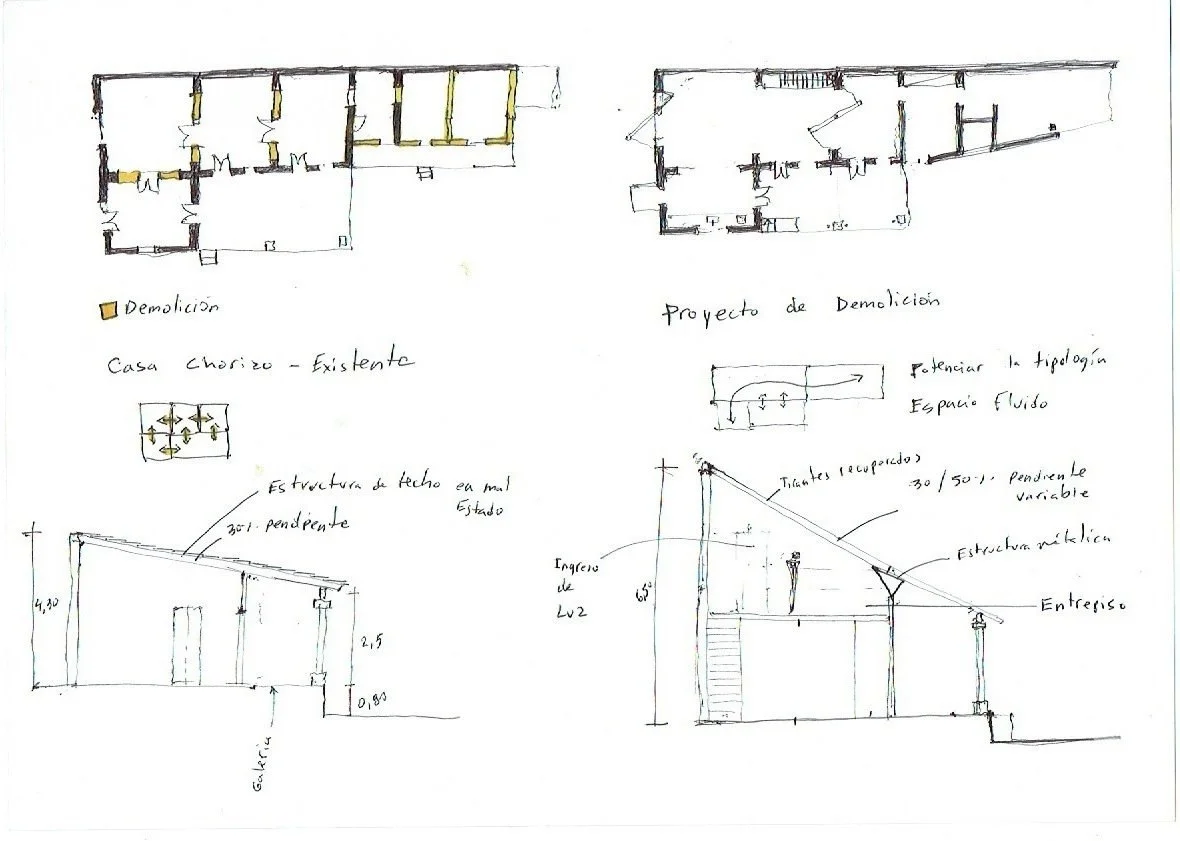 Demolición
Casa Chorizo - Existente
Estructura de techo en mal
Estado
30% pendiente
4,30
2,5
0,80
Galeria
Proyecto de Demolición
Potenciar la tipología
Espacio Fluido
Tirantes recuperados
30/50% pendiente
variable
Estructura métalica
Ingreso
de
Luz
Entrepiso